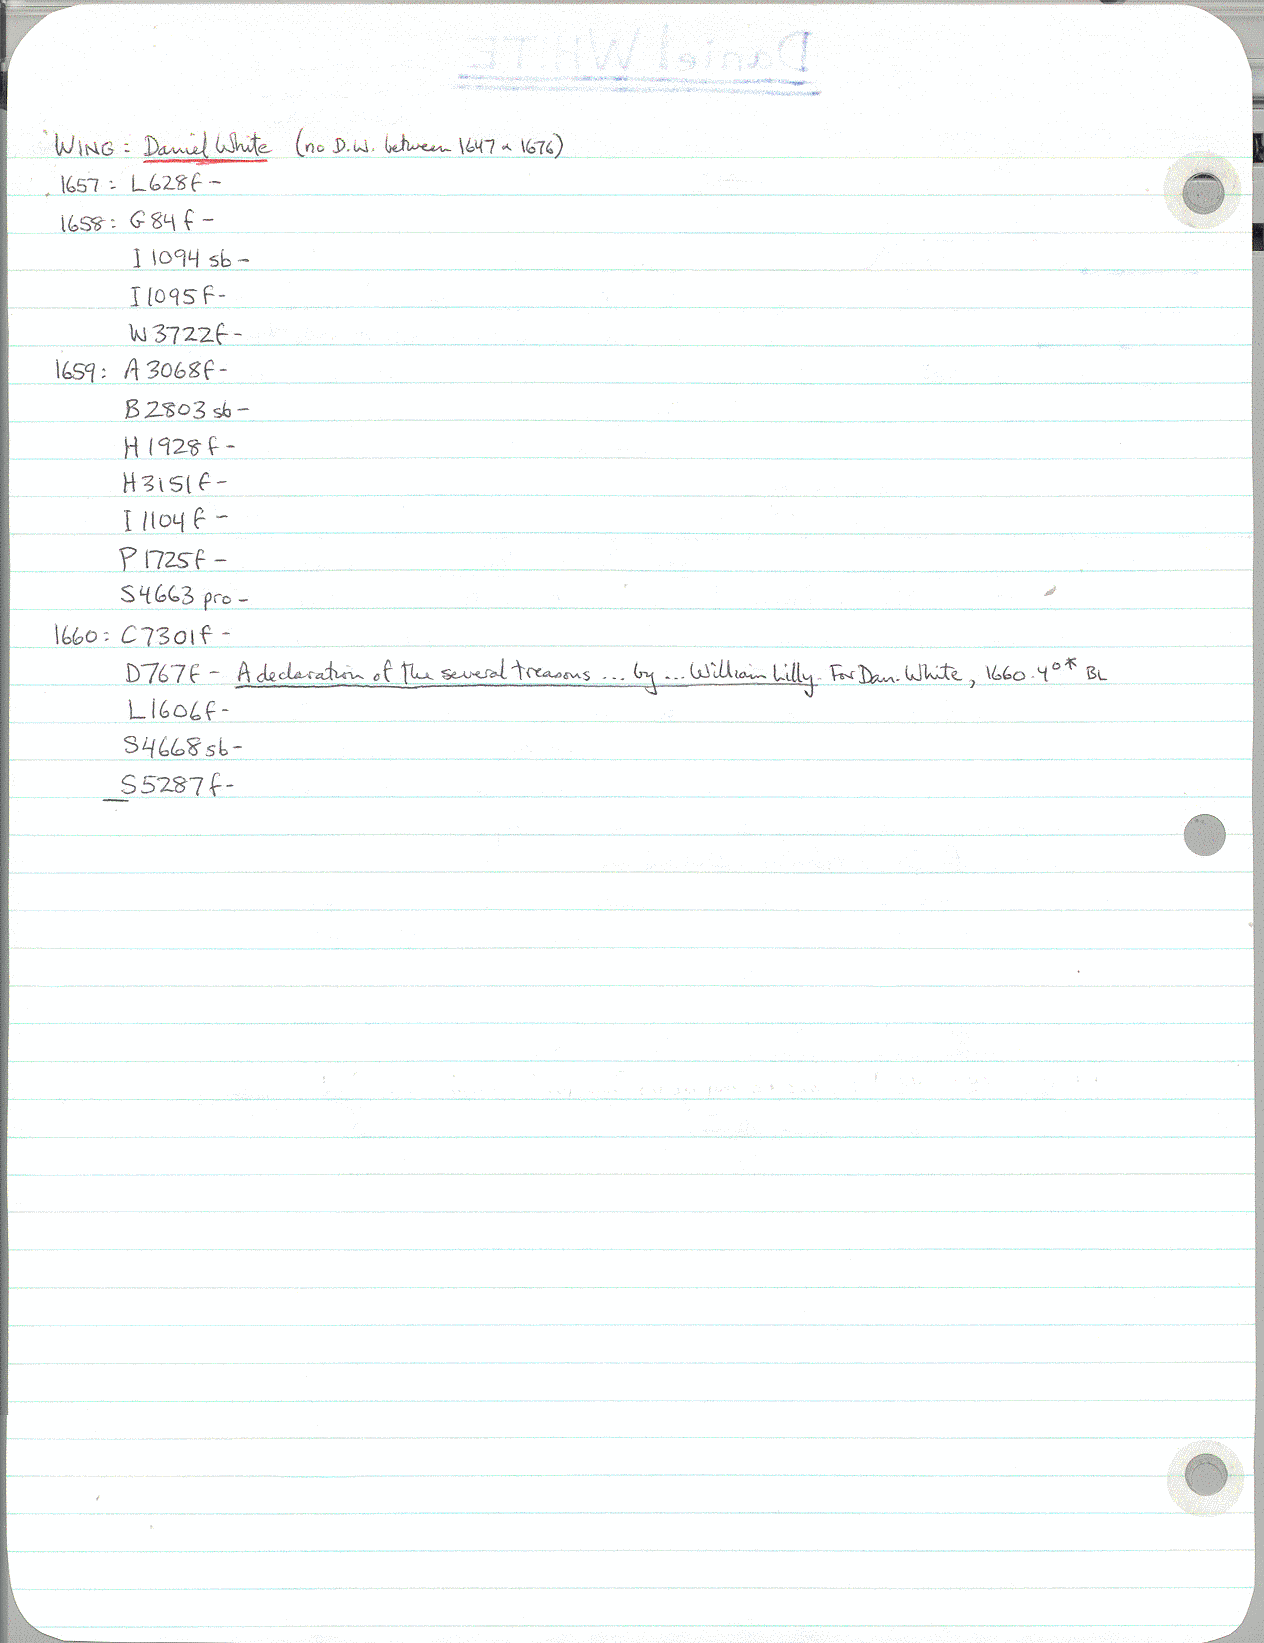 Daniel WHITE
WING: Daniel White (no D.W. between 1647 & 1676)
1657: L628f-
1658: G84f-
I1094 sb-
I1095f-
W3722f-
1659: A3068f-
B2803 sb-
H1928f-
H3151f-
I1104f-
P1725f-
S4663 pro-
1660: C7301f-
D767f- A declaration of the several treasons ... by ... William Lilly. For Dan. White, 1660. 4o* BL
L1606f-
S4668 sb-
S5287f-